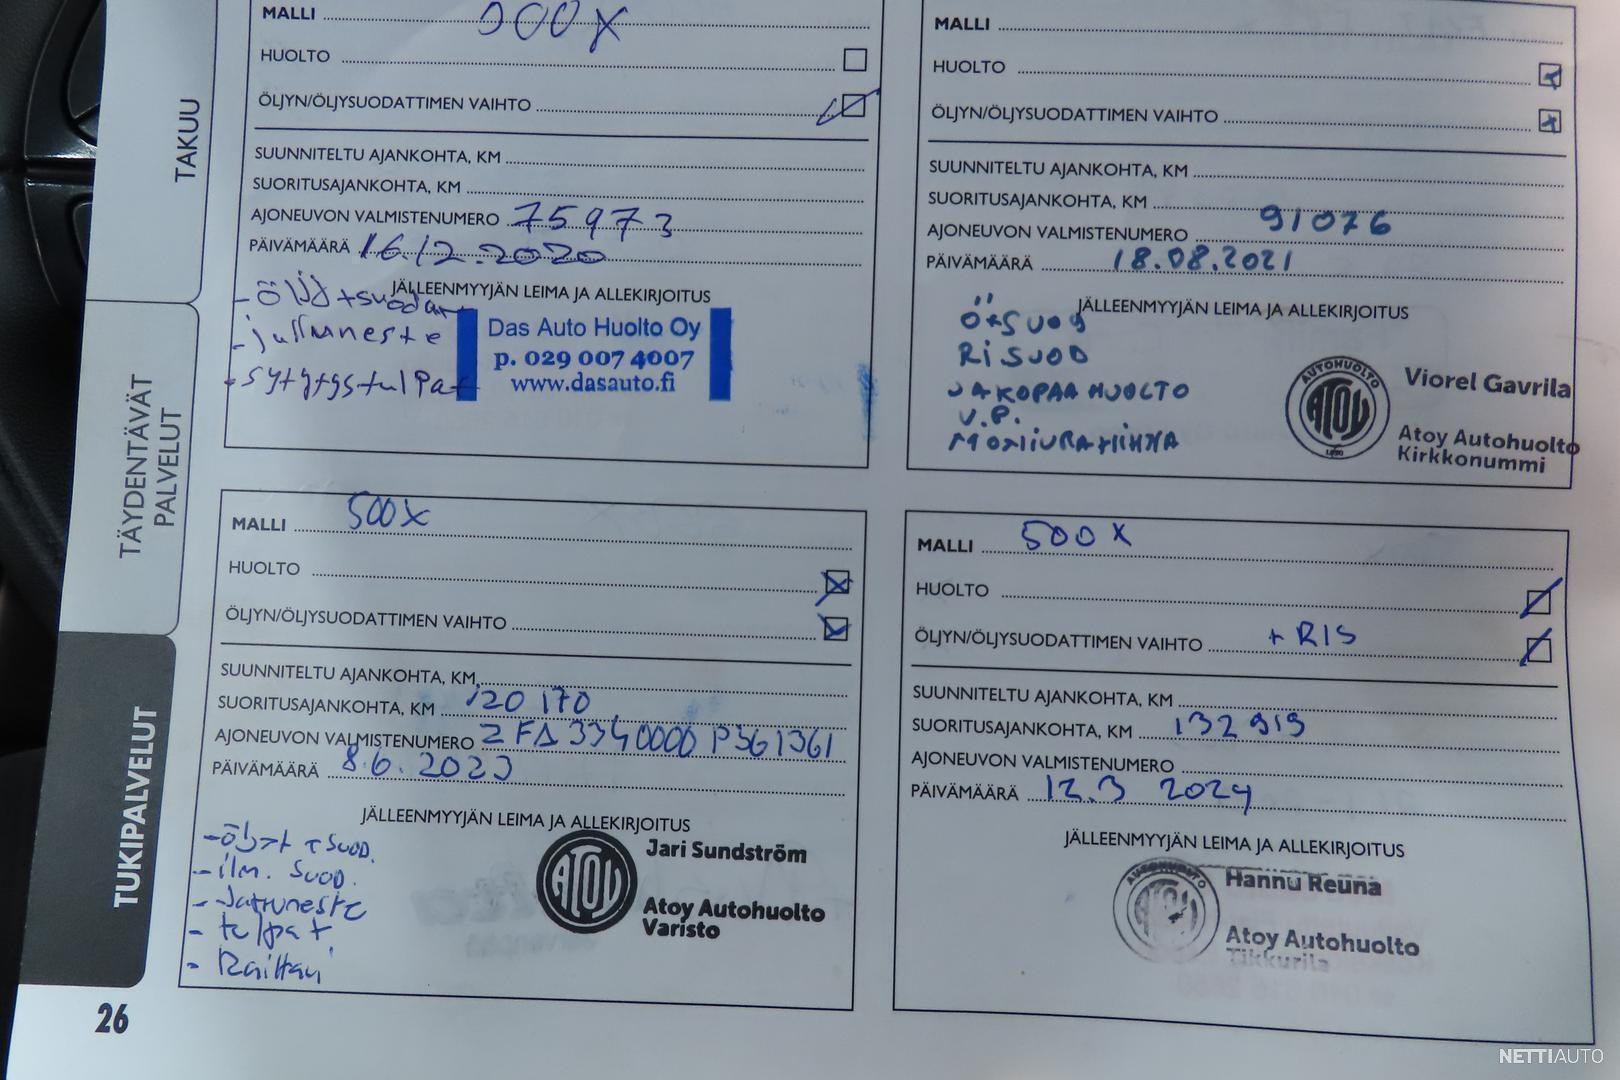 MALLI 500X
HUOLTO
ÖLJYN/ÖLJYSUODATTIMEN VAIHTO
SUUNNITELTU AJANKOHTA, KM
SUORITUSAJANKOHTA, KM
AJONEUVON VALMISTENUMERO 75973
PÄIVÄMÄÄRÄ 16.12.2020
JÄLLEENMYYJÄN LEIMA JA ALLEKIRJOITUS
- öljyt+suodat
- jarruneste
- sytytystulpat
Das Auto Huolto Oy
p. 029 007 4007
www.dasauto.fi
MALLI
HUOLTO
ÖLJYN/ÖLJYSUODATTIMEN VAIHTO
SUUNNITELTU AJANKOHTA, KM
SUORITUSAJANKOHTA, KM
AJONEUVON VALMISTENUMERO 91076
PÄIVÄMÄÄRÄ 18.08.2021
JÄLLEENMYYJÄN LEIMA JA ALLEKIRJOITUS
Ö+SUOD
RISUOD
JAKOPAA HUOLTO
V.P.
MONIURAHIHNA
AUTOHUOLTO
ATOY
Viorel Gavrila
Atoy Autohuolto
Kirkkonummi
MALLI 500X
HUOLTO
ÖLJYN/ÖLJYSUODATTIMEN VAIHTO
SUUNNITELTU AJANKOHTA, KM
SUORITUSAJANKOHTA, KM 120 170
AJONEUVON VALMISTENUMERO ZFA3340000P361361
PÄIVÄMÄÄRÄ 8.6.2023
JÄLLEENMYYJÄN LEIMA JA ALLEKIRJOITUS
- öljyt + SUOD.
- ilm. SUOD.
- Jarruneste
- tulpat
- Raittari
ATOY
Jari Sundström
Atoy Autohuolto
Varisto
MALLI 500X
HUOLTO
ÖLJYN/ÖLJYSUODATTIMEN VAIHTO + RIS
SUUNNITELTU AJANKOHTA, KM
SUORITUSAJANKOHTA, KM 132919
AJONEUVON VALMISTENUMERO
PÄIVÄMÄÄRÄ 12.3 2024
JÄLLEENMYYJÄN LEIMA JA ALLEKIRJOITUS
AUTOHUOLTO
ATOY
Hannu Reuna
Atoy Autohuolto
Tikkurila
TAKUU
TÄYDENTÄVÄT
PALVELUT
TUKIPALVELUT
26
NETTIAUTO